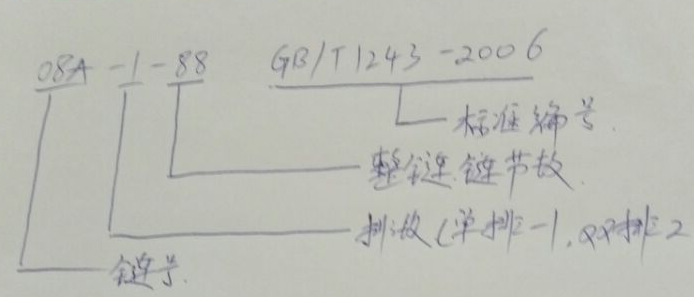 08A-1-88 GB/T1243-2006
标准编号.
整链链节数
排数(单排-1.双排2
链号.